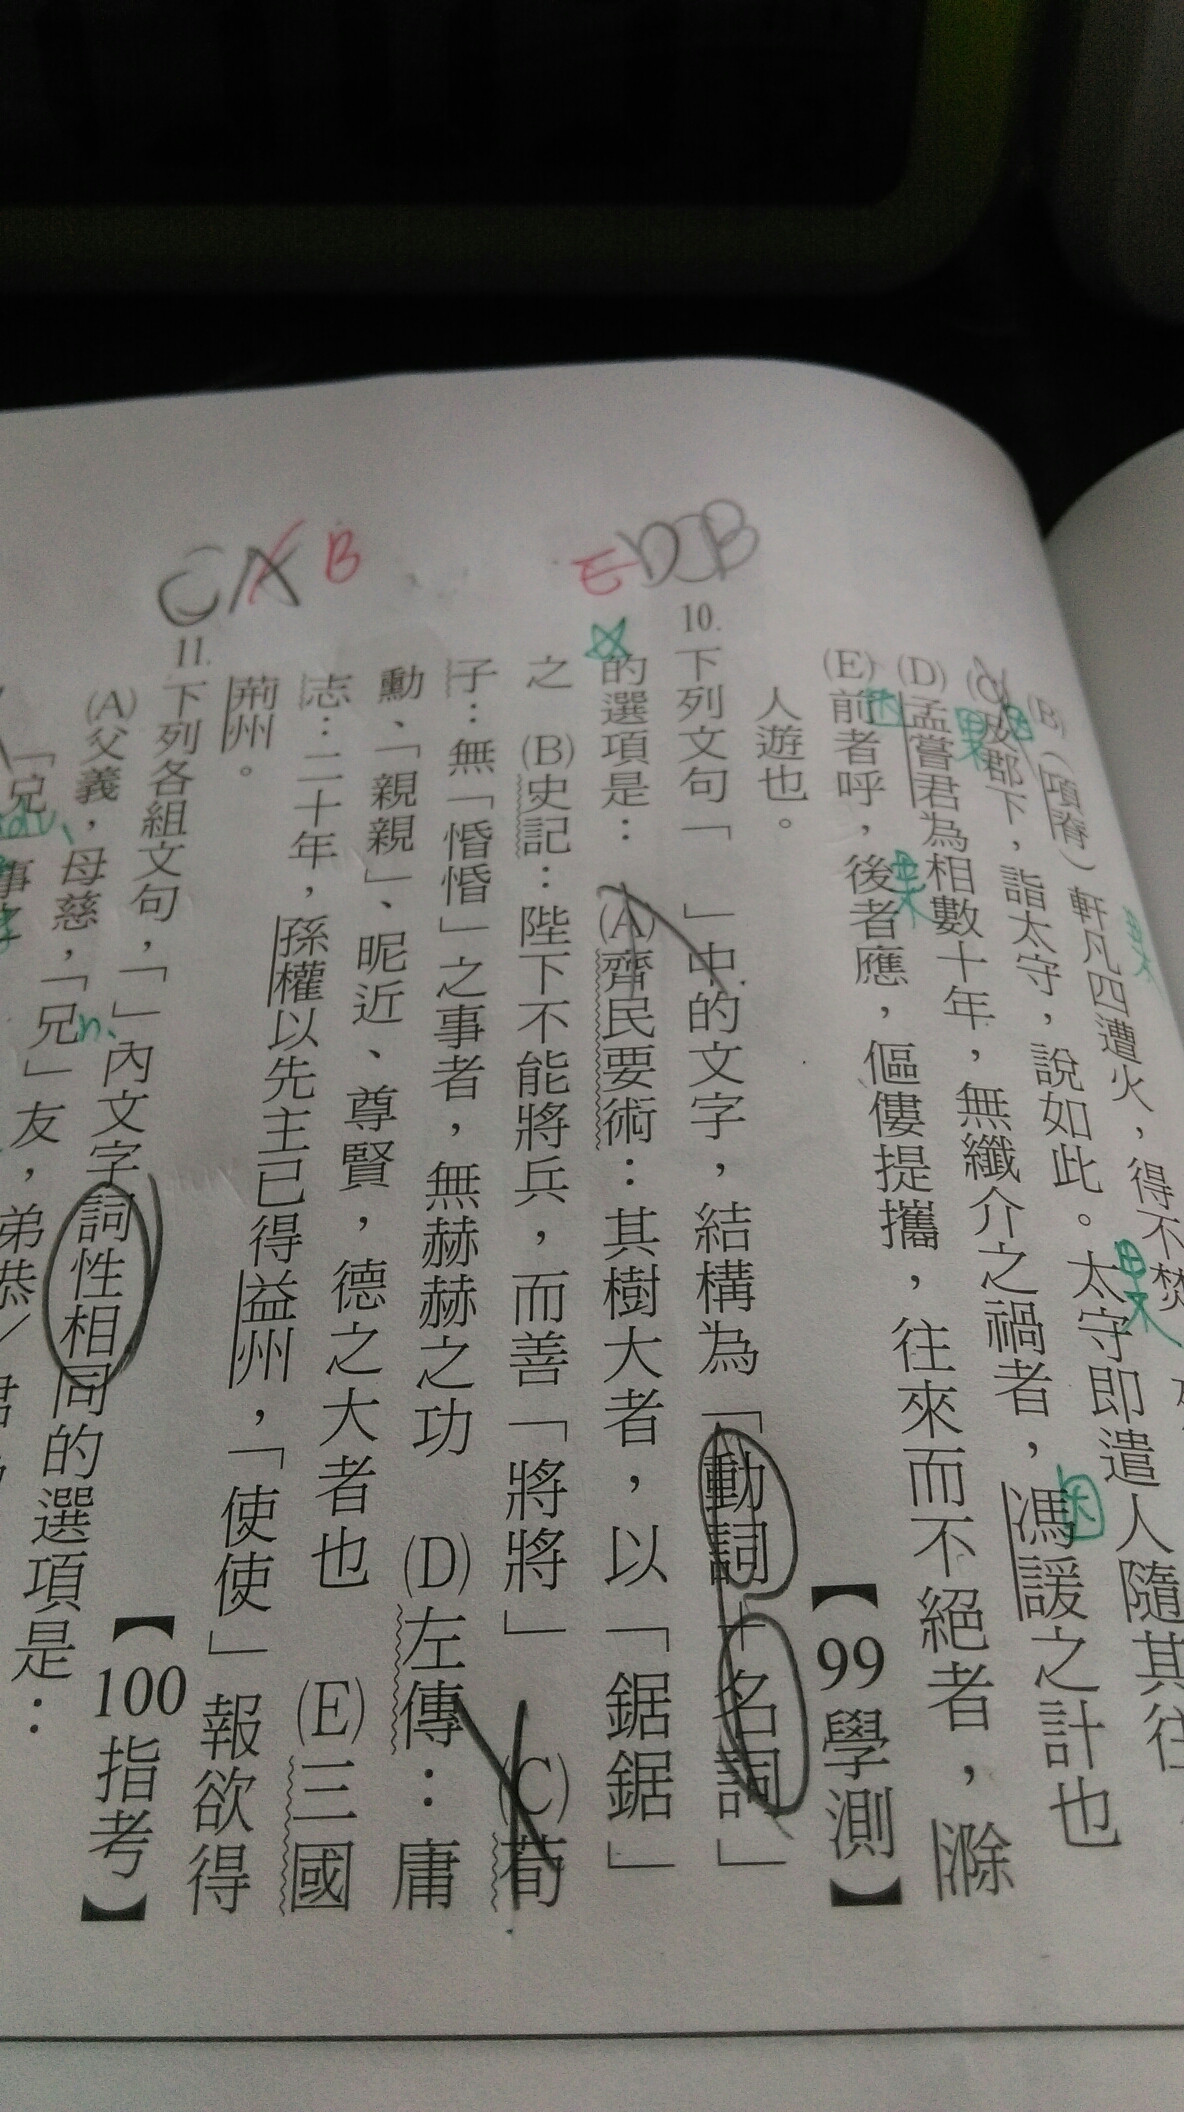 (B)(項脊)軒凡四遭火，得不焚
(C)及郡下，詣太守，說如此。太守即遣人隨其往
(D)孟嘗君為相數十年，無纖介之禍者，馮諼之計也
(E)前者呼，後者應，傴僂提攜，往來而不絕者，滁
人遊也。
【99學測】
EDCB
10.下列文句「　」中的文字，結構為「動詞＋名詞」
的選項是：　(A)齊民要術：其樹大者，以「鋸鋸」
之　(B)史記：陛下不能將兵，而善「將將」　(C)荀
子：無「惛惛」之事者，無赫赫之功　(D)左傳：庸
勳、「親親」、昵近、尊賢，德之大者也　(E)三國
志：二十年，孫權以先主已得益州，「使使」報欲得
荊州。
【100指考】
CAB
11.下列各組文句，「」內文字詞性相同的選項是：
(A)父義，母慈，「兄」友，弟恭／
「兄」事
n.
adv.
因
果
因
果
果
因